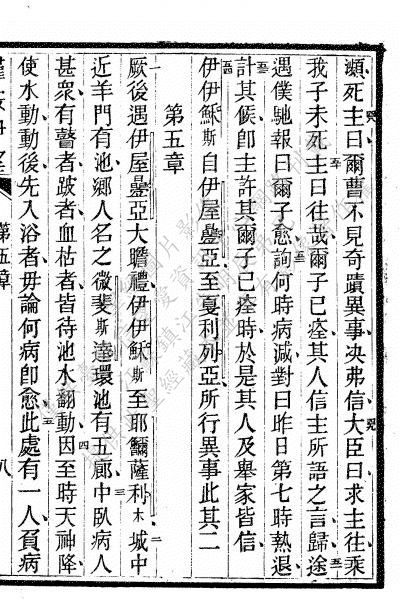 瀕死主曰爾曹不見奇蹟異事决弗信大臣曰求主往乘
我子未死主曰往哉爾子已痊其人信主所語之言歸途
遇僕馳報曰爾子愈詢何時病減對曰昨日第七時熱退
計其候卽主許其爾子已痊時於是其人及舉家皆信
伊伊穌斯自伊屋疊亞至戛利列亞所行異事此其二
第五章
厥後遇伊屋疊亞大瞻禮伊伊穌斯至耶爾薩利木城中
近羊門有池鄕人名之微斐斯達環池有五廊中臥病人
甚衆有瞽者跛者血枯者皆待池水翻動因至時天神降
使水動動後先入浴者毋論何病卽愈此處有一人負病
第五章
八